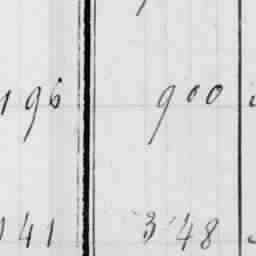 196 900
141 348